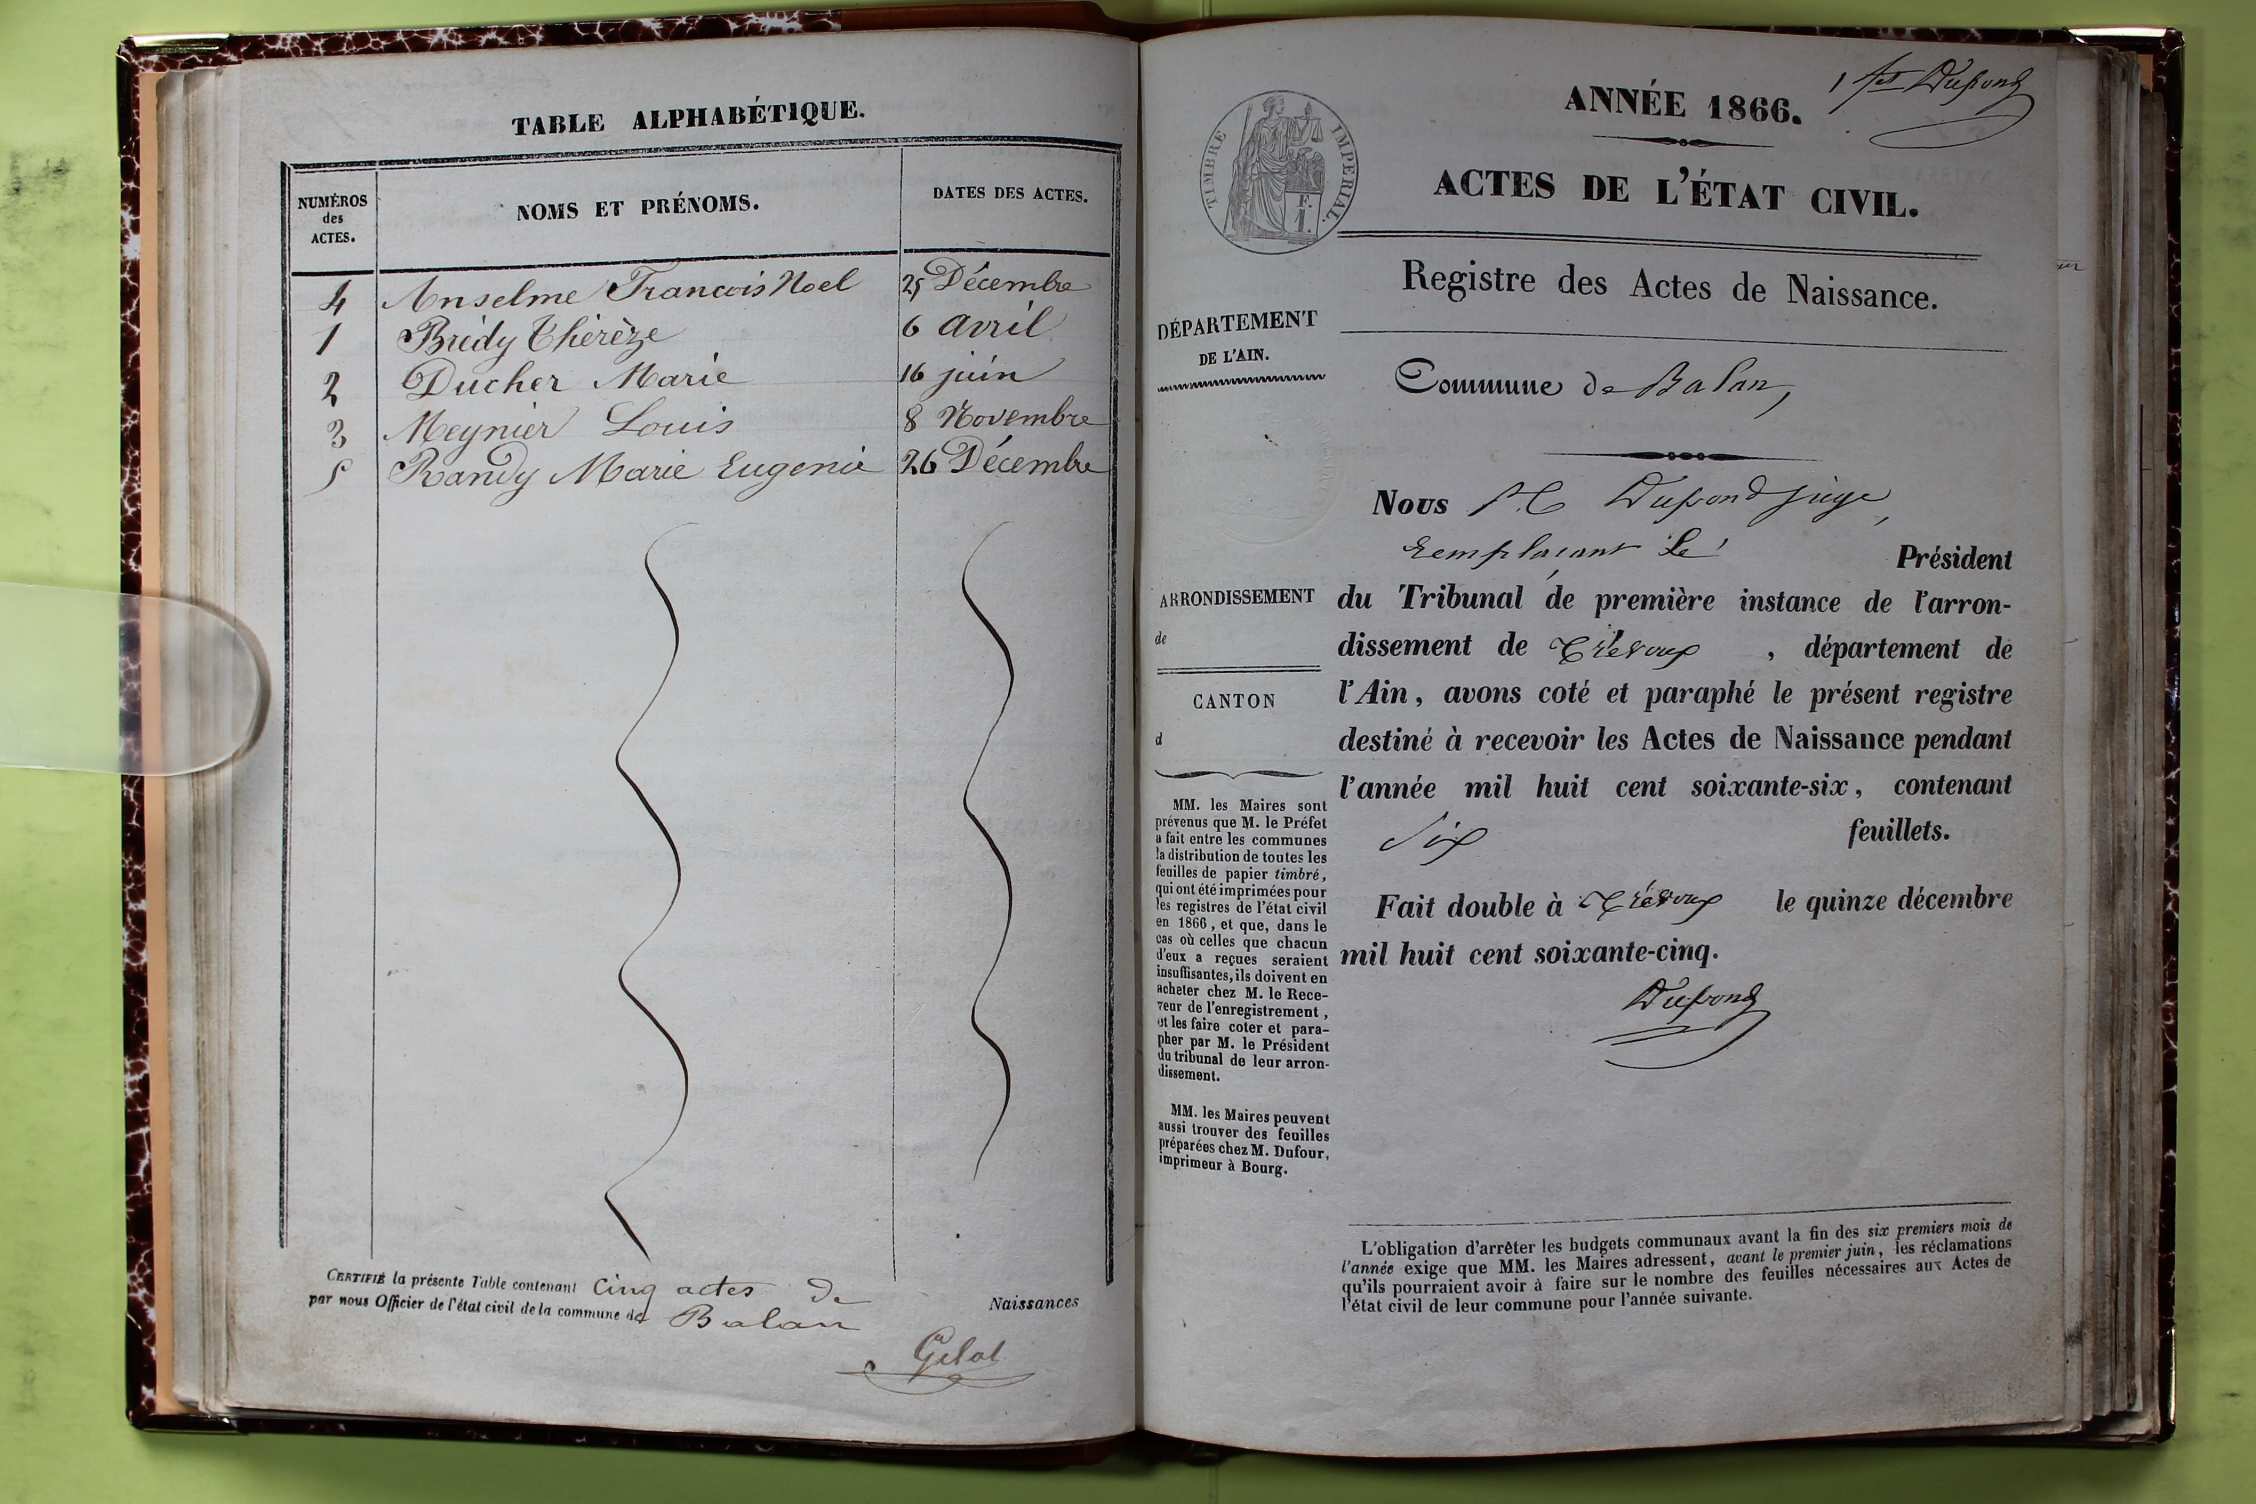 TABLE ALPHABÉTIQUE.
NUMÉROS des ACTES. NOMS ET PRÉNOMS. DATES DES ACTES.
4 Anselme François Noel 25 Décembre
1 Brédy Thérèze 6 avril
2 Ducher Marie 16 juin
3 Meynier Louis 8 Novembre
5 Randy Marie Eugenie 26 Décembre
CERTIFIÉ la présente Table contenant cinq actes de Naissances
par nous Officier de l'état civil de la commune de Balan
1 Dupond
ANNÉE 1866.
TIMBRE IMPÉRIAL.
F.
1.
ACTES DE L'ÉTAT CIVIL.
Registre des Actes de Naissance.
DÉPARTEMENT
DE L'AIN.
Commune de Balan,
Nous Dupond juge,
remplaçant le Président
ARRONDISSEMENT
de
CANTON
d
du Tribunal de première instance de l'arron-
dissement de Trévoux , département de
l'Ain, avons coté et paraphé le présent registre
destiné à recevoir les Actes de Naissance pendant
l'année mil huit cent soixante-six, contenant
six feuillets.
Fait double à Trévoux le quinze décembre
mil huit cent soixante-cinq.
Dupond
MM. les Maires sont
prévenus que M. le Préfet
a fait entre les communes
la distribution de toutes les
feuilles de papier timbré,
qui ont été imprimées pour
les registres de l'état civil
en 1866, et que, dans le
cas où celles que chacun
d'eux a reçues seraient
insuffisantes, ils doivent en
acheter chez M. le Rece-
veur de l'enregistrement,
et les faire coter et para-
pher par M. le Président
du tribunal de leur arron-
dissement.
MM. les Maires peuvent
aussi trouver des feuilles
préparées chez M. Dufour,
imprimeur à Bourg.
L'obligation d'arrêter les budgets communaux avant la fin des six premiers mois de
l'année exige que MM. les Maires adressent, avant le premier juin, les réclamations
qu'ils pourraient avoir à faire sur le nombre des feuilles nécessaires aux Actes de
l'état civil de leur commune pour l'année suivante.